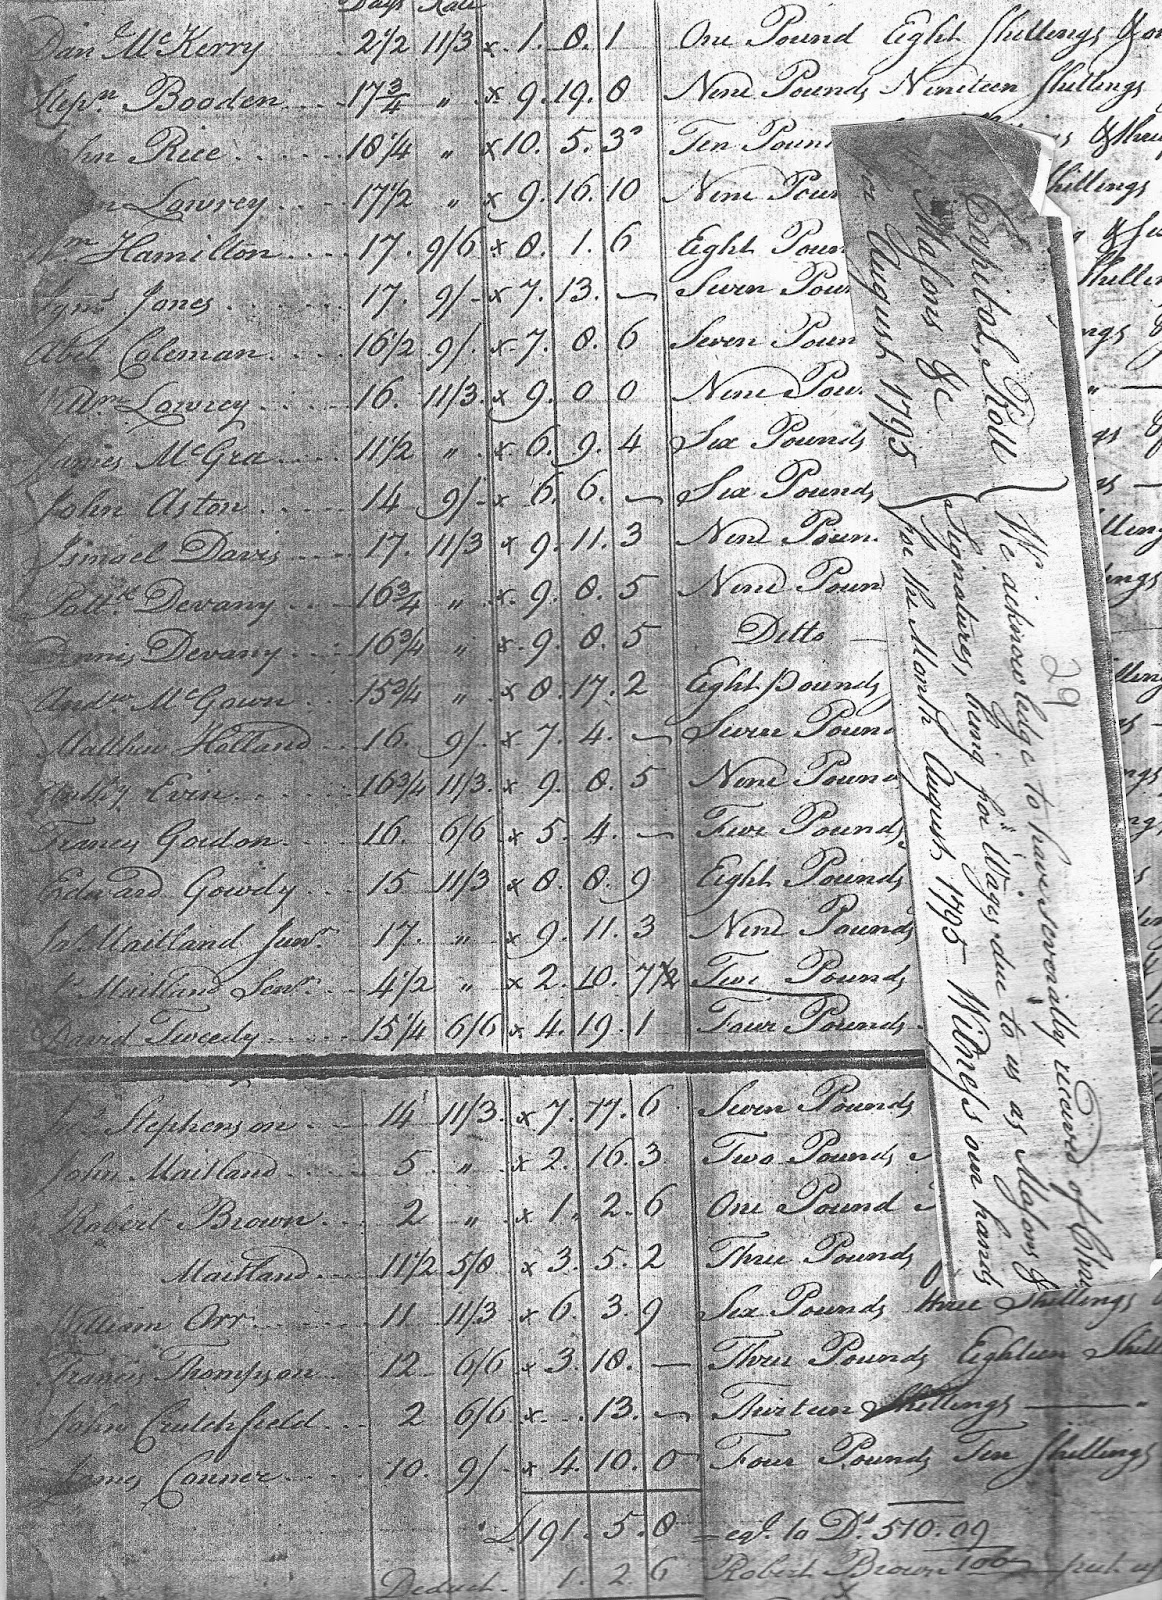 Days Rate
Dan McKerry 2 1/2 11/3 x 1. 8. 1 One Pound Eight Shillings &
Stepn Booden 17 3/4 " x 9. 19. 8 Nine Pounds Nineteen Shillings
hn Rice 18 1/4 " x 10. 5. 3 Ten Poun
n Lowrey 17 1/2 " x 9. 16. 10 Nine Poun Shillings
m Hamilton 17. 9/6 x 8. 1. 6 Eight Poun
Jones 17. 9/- x 7. 13. — Seven Poun
Abel Coleman 16 1/2 9/. x 7. 8. 6 Seven Poun
Wm Lowrey 16. 11/3 x 9. 0 0 Nine Pou
James McGra 11 1/2 " x 6. 9. 4 Six Pounds
John Aston 14 9/- x 6. 6. — Six Pounds
Ismael Davis 17. 11/3 x 9. 11. 3 Nine Poun
Pattk Devany 16 3/4 " x 9. 8. 5 Nine Poun
Dennis Devany 16 3/4 " x 9. 8. 5 Ditto —
Andw McGown 15 3/4 " x 8. 17. 2 Eight pounds
Matthew Holland 16. 9/. x 7. 4. — Seven Poun
Evin 16 3/4 11/3. x 9. 8. 5 Nine Poun
Francis Gordon 16. 6/6 x 5. 4. — Five Pounds
Edward Gowdy 15 11/3 x 8. 8. 9 Eight Pounds
Jas Maitland Junr 17. " x 9. 11. 3 Nine Pounds
Maitland Senr 4 1/2 " x 2. 10. 7 1/2 Two Pounds
David Tweedy 15 1/4 6/6 x 4. 19. 1 Four Pounds
Stephenson 14 11/3. x 7. 17. 6 Seven Pounds
John Maitland 5 " x 2. 16. 3 Two Pounds
Robert Brown 2 " x 1. 2. 6 One Pound
Maitland 11 1/2 5/8 x 3. 5. 2 Three Pounds
William Orr 11 11/3 x 6. 3. 9 Six Pounds three Shillings
Francis Thompson 12 6/6 x 3. 18. — Three Pounds Eighteen Shill
John Crutchfield 2 6/6 x . 13. — Thirteen Shillings — "
James Conner 10. 9/- x 4. 10. 0 Four Pounds Ten Shillings
£191. 5. 8 = eql. to Ds. 510. 09
Deduct. 1. 2. 6 Robert Brown
x
Capitol, Roll
of Masons &c
for August 1795
29
We acknowledge to have severally received of
Signatures, being for Wages due to us as Masons &
for the Month August 1795 Witness our hands